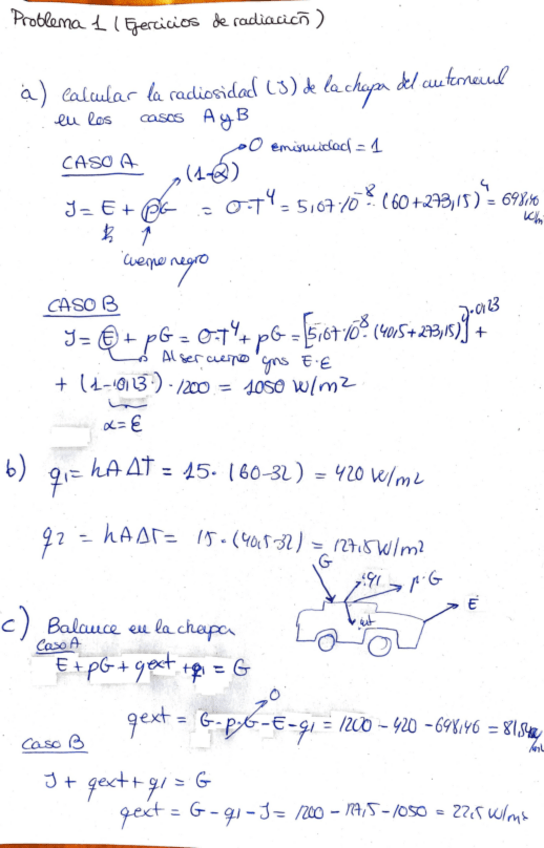 Problema 1 (Ejercicios de radiación)
a) Calcular la radiosidad (J) de la chapa del automovil
en los casos A y B
CASO A
(1-α) 0 emisividad = 1
J = E + ρG = σ·T⁴ = 5,67·10⁻⁸·(60+273,15)⁴ = 698,46
cuerpo negro
CASO B
J = E + ρG = σ·T⁴ + ρG = [5,67·10⁻⁸·(40,5+273,15)⁴]·0,13 +
Al ser cuerpo gris E·ε
+ (1-0,13)·1200 = 1050 W/m2
α = ε
b) q1 = hAΔT = 15·(60-32) = 420 W/m2
q2 = hAΔT = 15·(40,5-32) = 127,5 W/m2
G q1 ρ·G E
c) Balance en la chapa
Caso A
E + ρG + qext + q1 = G
0
qext = G-ρ·G-E-q1 = 1200 - 420 - 698,46 = 81,54
Caso B
J + qext + q1 = G
qext = G - q1 - J = 1200 - 127,5 - 1050 = 22,5 W/m2